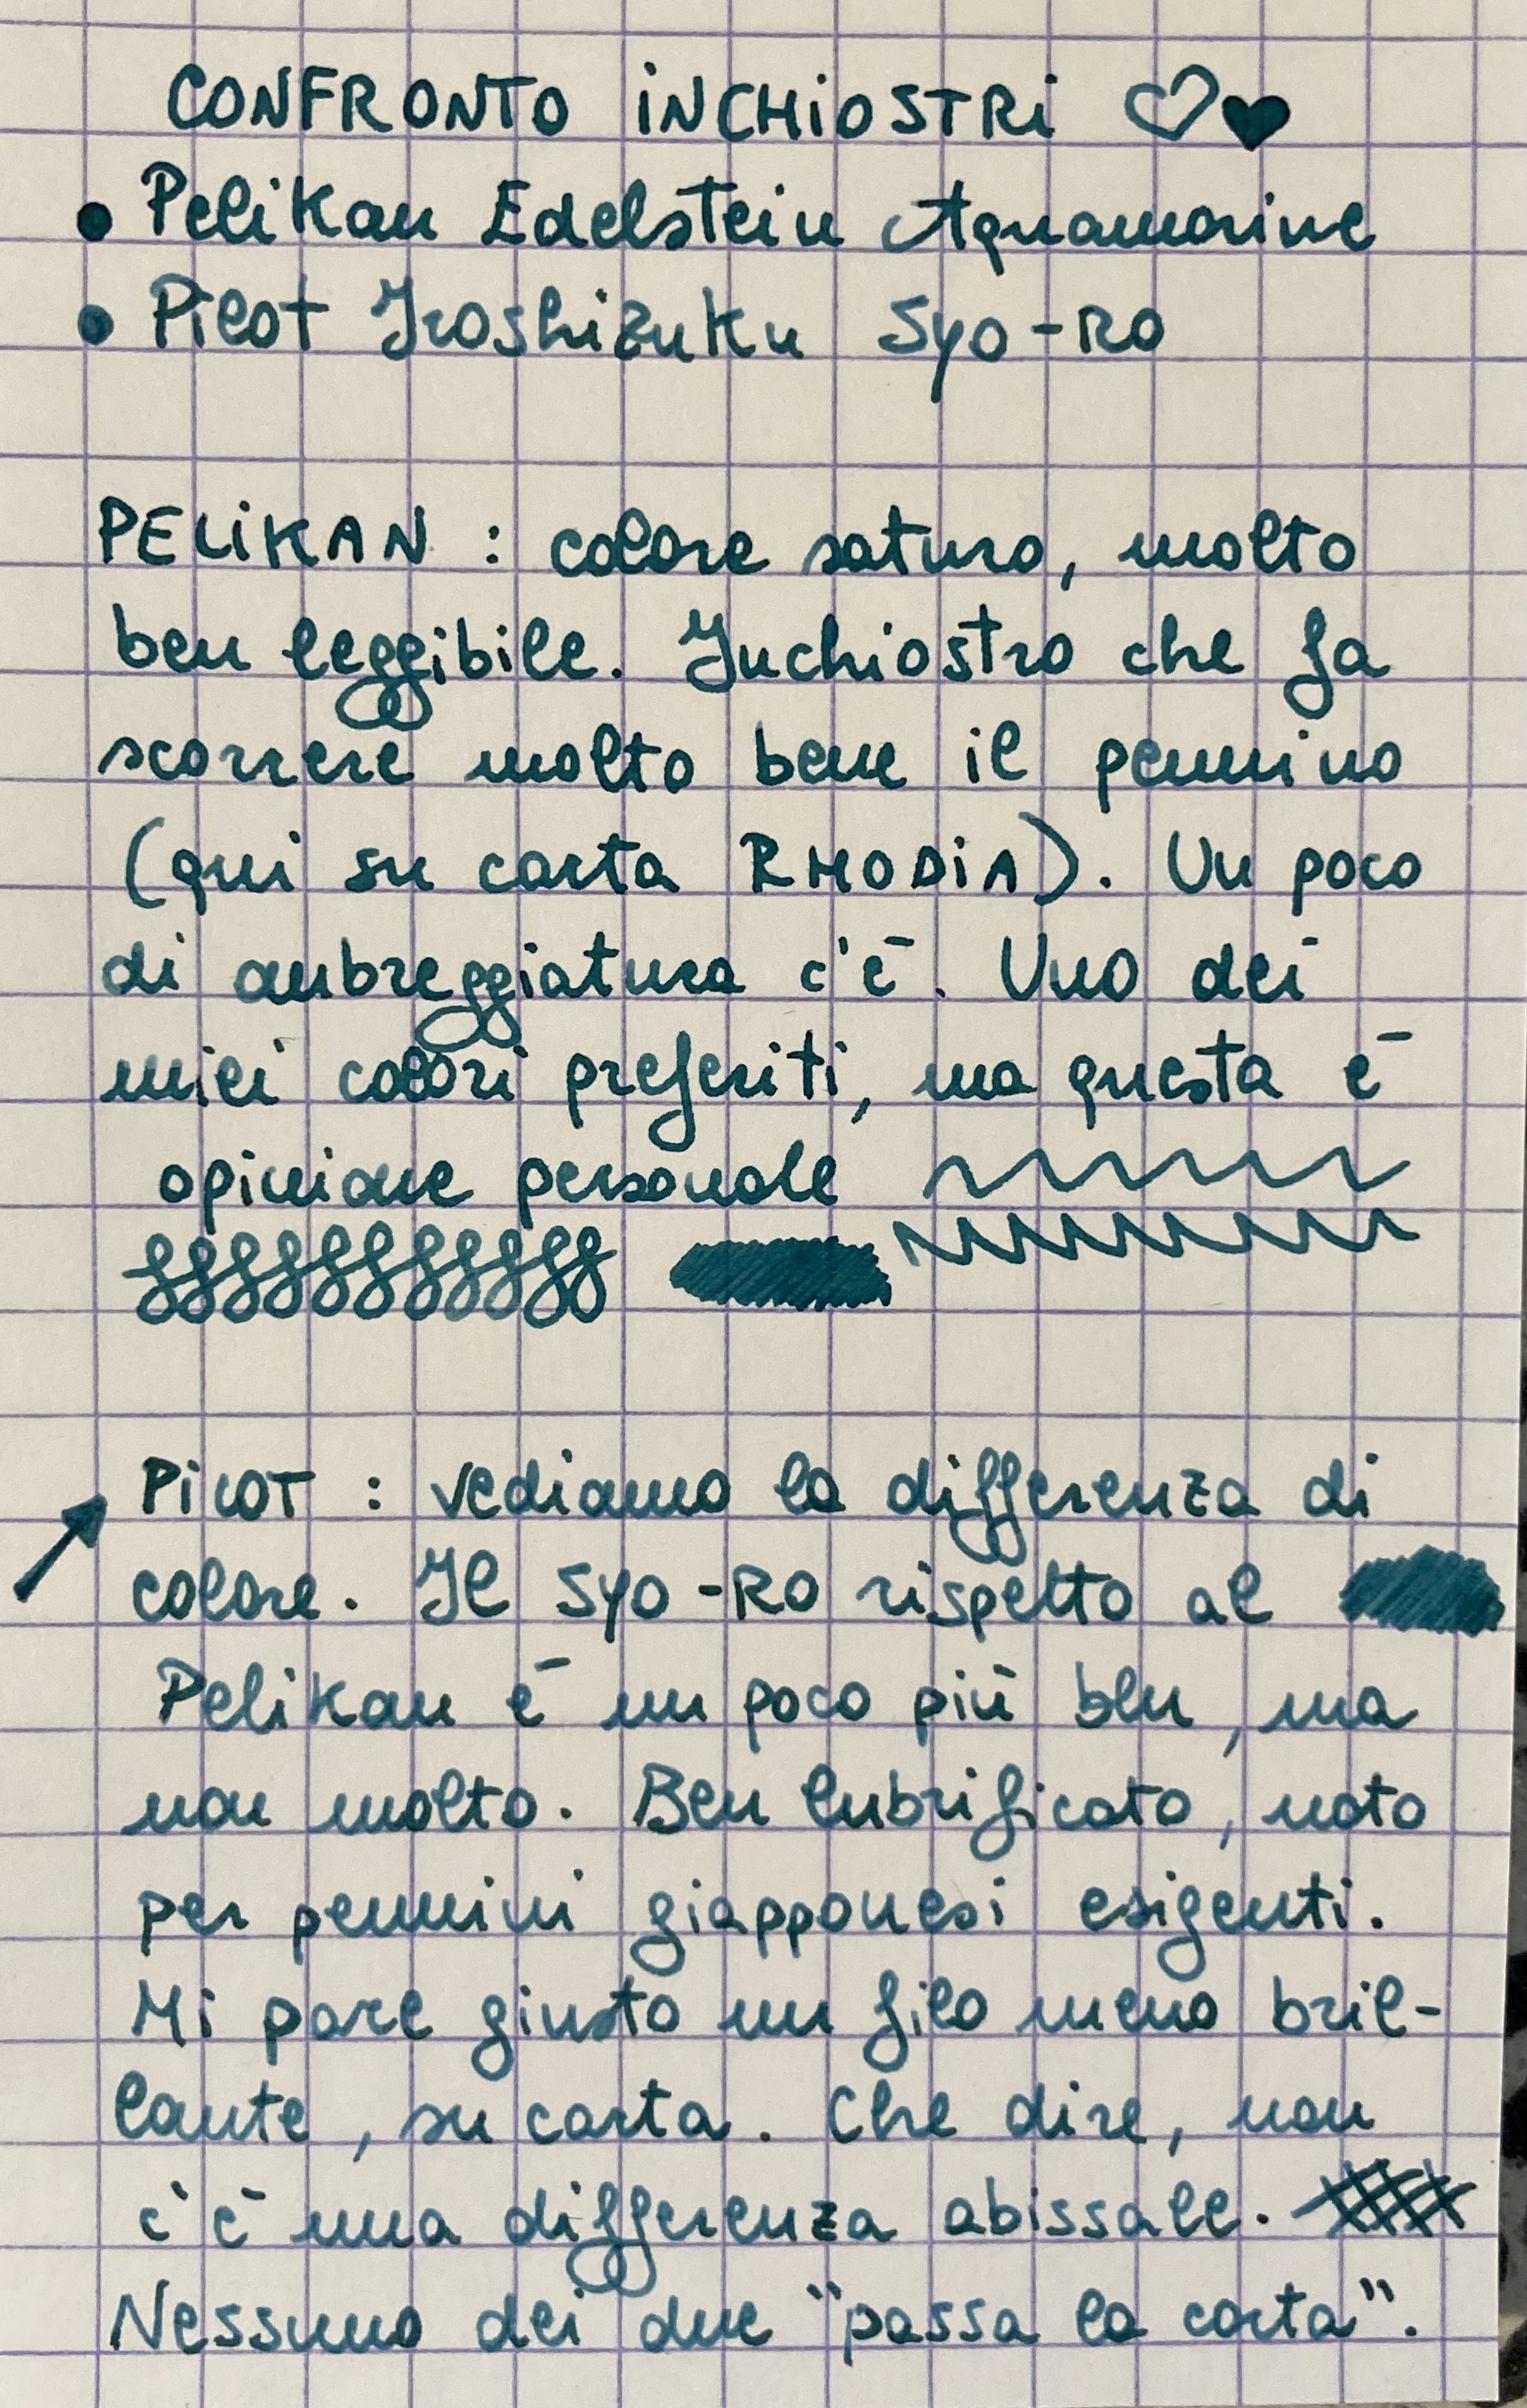 CONFRONTO iNCHiOSTRi
• Pelikan Edelstein Aquamarine
• Pilot Iroshizuku Syo-Ro
PELiKAN : colore saturo, molto
ben leggibile. Inchiostro che fa
scorrere molto bene il pennino
(qui su carta RHODiA). Un poco
di ombreggiatura c'è. Uno dei
miei colori preferiti, ma questa è
opinione personale
PiLOT : vediamo la differenza di
colore. Il Syo-Ro rispetto al
Pelikan è un poco più blu, ma
non molto. Ben lubrificato, noto
per pennini giapponesi esigenti.
Mi pare giusto un filo meno bril-
lante, su carta. Che dire, non
c'è una differenza abissale.
Nessuno dei due "passa la carta".